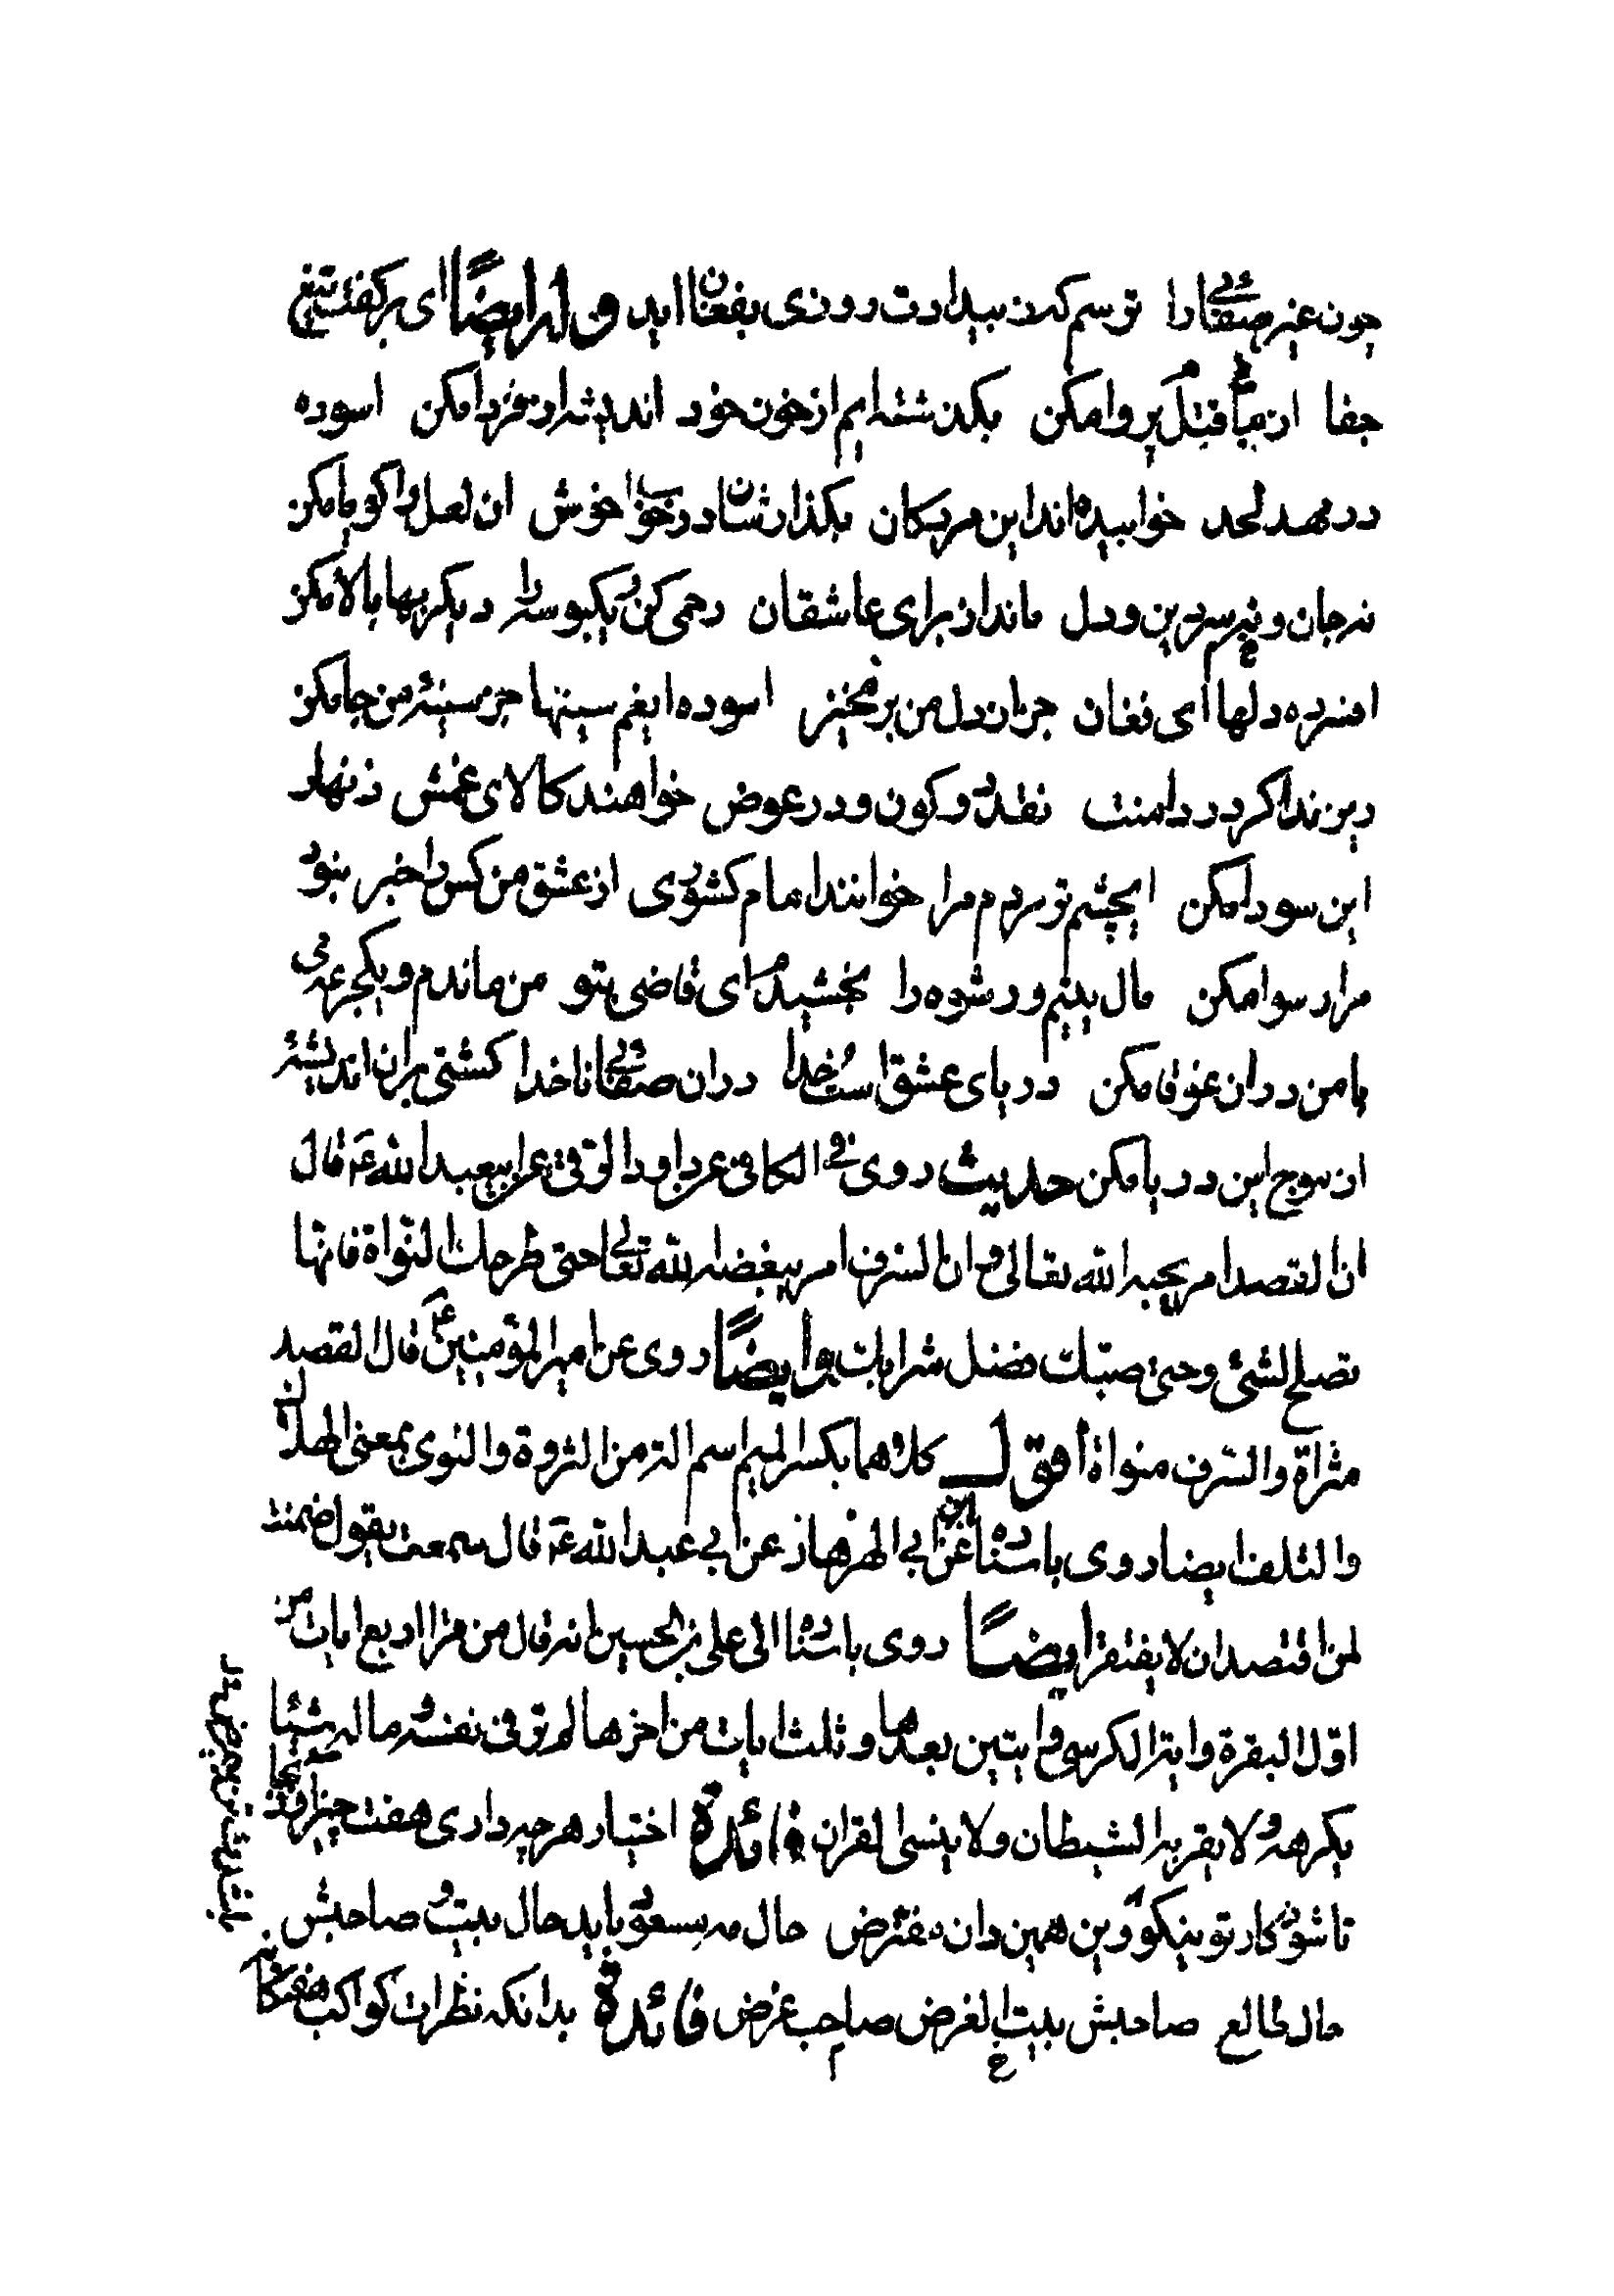 چون غیر صفائی را ترسم کز بیدادت روزی بفغان اید وله ایضاً ای برکفت تیغ
جفا از قتل پروا مکن بگذشته ایم از خون خود اندیشه از فردا مکن اسوده
در مهد لحد خوابیده اند این مردکان بگذارشان در خواب خوش ان لعل را کویا مکن
نه جان و نه سر دین و دل ماند از برای عاشقان رحمی کن در یکبوسه را دیکر بها بالا مکن
افسرده دلها ای فغان جز از دل من برمخیز اسوده ایغم سینها جز سینۀ من جا مکن
ریزند اکر در دامنت نقد دو کون و در عوض خواهند کالای غمش زنهار
این سودا مکن ایچشم تر مردم مرا خوانند امام کشوری از عشق من کس را خبر نبود
مرا رسوا مکن مال یتیم و رشوه را بخشیدم ای قاضی بتو من ماندم و یکجرعه می
با من در ان غوغا مکن دریای عشق است خدا در ان صفائی ناخدا کشتی بران اندیشۀ
از موج این دریا مکن حدیث روی فی الکافی عن داود الرقی عن ابیعبدالله ع قال
ان القصد امر یحبه الله تعالی و ان السرف امر یبغضه الله تعالی حتی طرحك النواة فانها
تصلح لشئ وحتی صبّك فضل شرابك وایضاً روی عن امیر المؤمنین ع قال القصد
مثراة والسرف متواة اقول کلاهما بکسر المیم اسم الة من الثروة والتوی بمعنی الهلاك
والتلف ایضا روی باسناده عن ابی عبدالله ع قال سمعت یقول ضمنت
لمن اقتصد ان لا یفتقر ایضاً روی باسناده الی علی بن الحسین انه قال من قرا اربع ایات من
اوّل البقرة وایة الکرسی و ایتین بعدها و ثلث ایات من اخرها لم یر فی نفسه و ماله شیئا
یکرهه و لا یقربه الشیطان ولا ینسی القران فائدة اختیار هر چه داری هفت چیز
تا شود کار تو نیکو وین همین دان مفترض حال مه سعد باید حال بیت و صاحبش
حال طالع صاحبش بیت الغرض صاحب غرض فائدة بدانکه نظرات کواکب